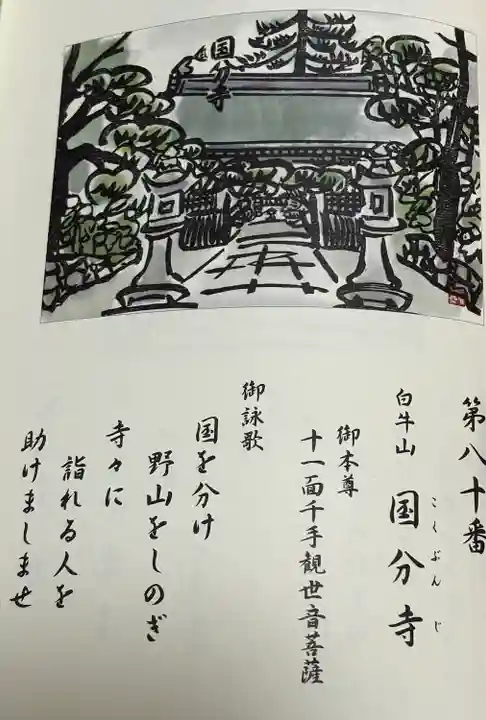 国分寺
第八十番
白牛山 国分寺
こくぶんじ
御本尊
十一面千手観世音菩薩
御詠歌
国を分け
野山をしのぎ
寺々に
詣れる人を
助けましませ